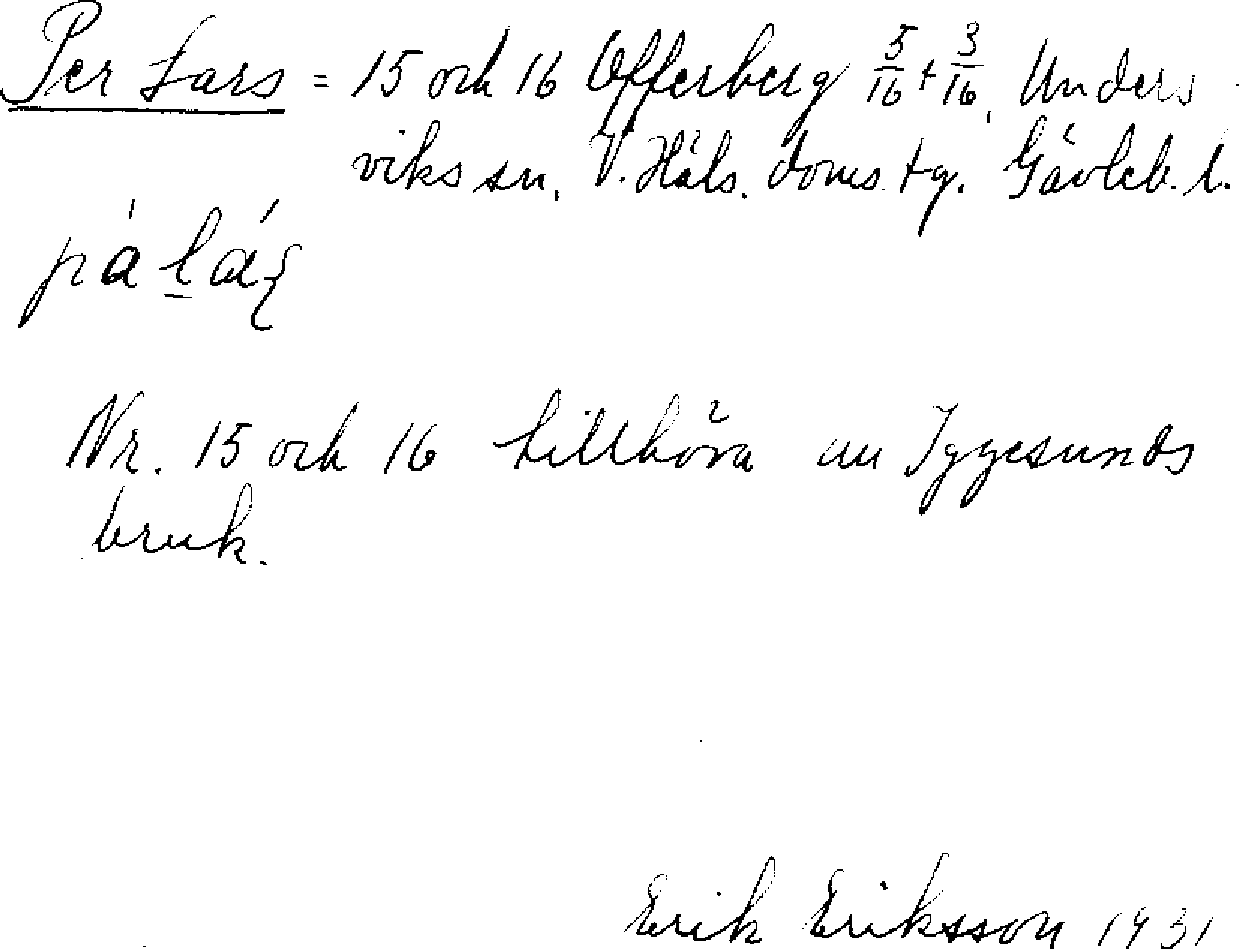 Per Lars = 15 och 16 Offerberg 5/16 + 3/16, Unders-
viks sn, V. Häls. doms. tg. Gävleb. l.
Nr. 15 och 16 tillhöra nu Iggesunds
bruk.
Erik Eriksson 1931